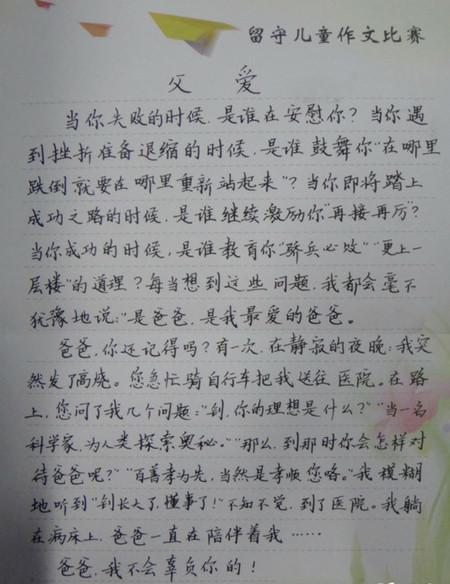 留守儿童作文比赛
父 爱
当你失败的时候,是谁在安慰你?当你遇
到挫折准备退缩的时候,是谁鼓舞你“在哪里
跌倒就要在哪里重新站起来”?当你即将踏上
成功之路的时候,是谁继续激励你“再接再厉?
当你成功的时候,是谁教育你“骄兵必败”“更上一
层楼”的道理?每当想到这些问题,我都会毫不
犹豫地说:“是爸爸,是我最爱的爸爸。
爸爸,你还记得吗?有一次,在静寂的夜晚,我突
然发了高烧。您急忙骑自行车把我送往医院。在路
上,您问了我几个问题:“钊,你的理想是什么?”“当一名
科学家,为人类探索奥秘。”“那么,到那时你会怎样对
待爸爸呢?”“百善孝为先,当然是孝顺您咯。”我模糊
地听到“钊长大了,懂事了!”不知不觉,到了医院。我躺
在病床上,爸爸一直在陪伴着我……
爸爸,我不会辜负你的!